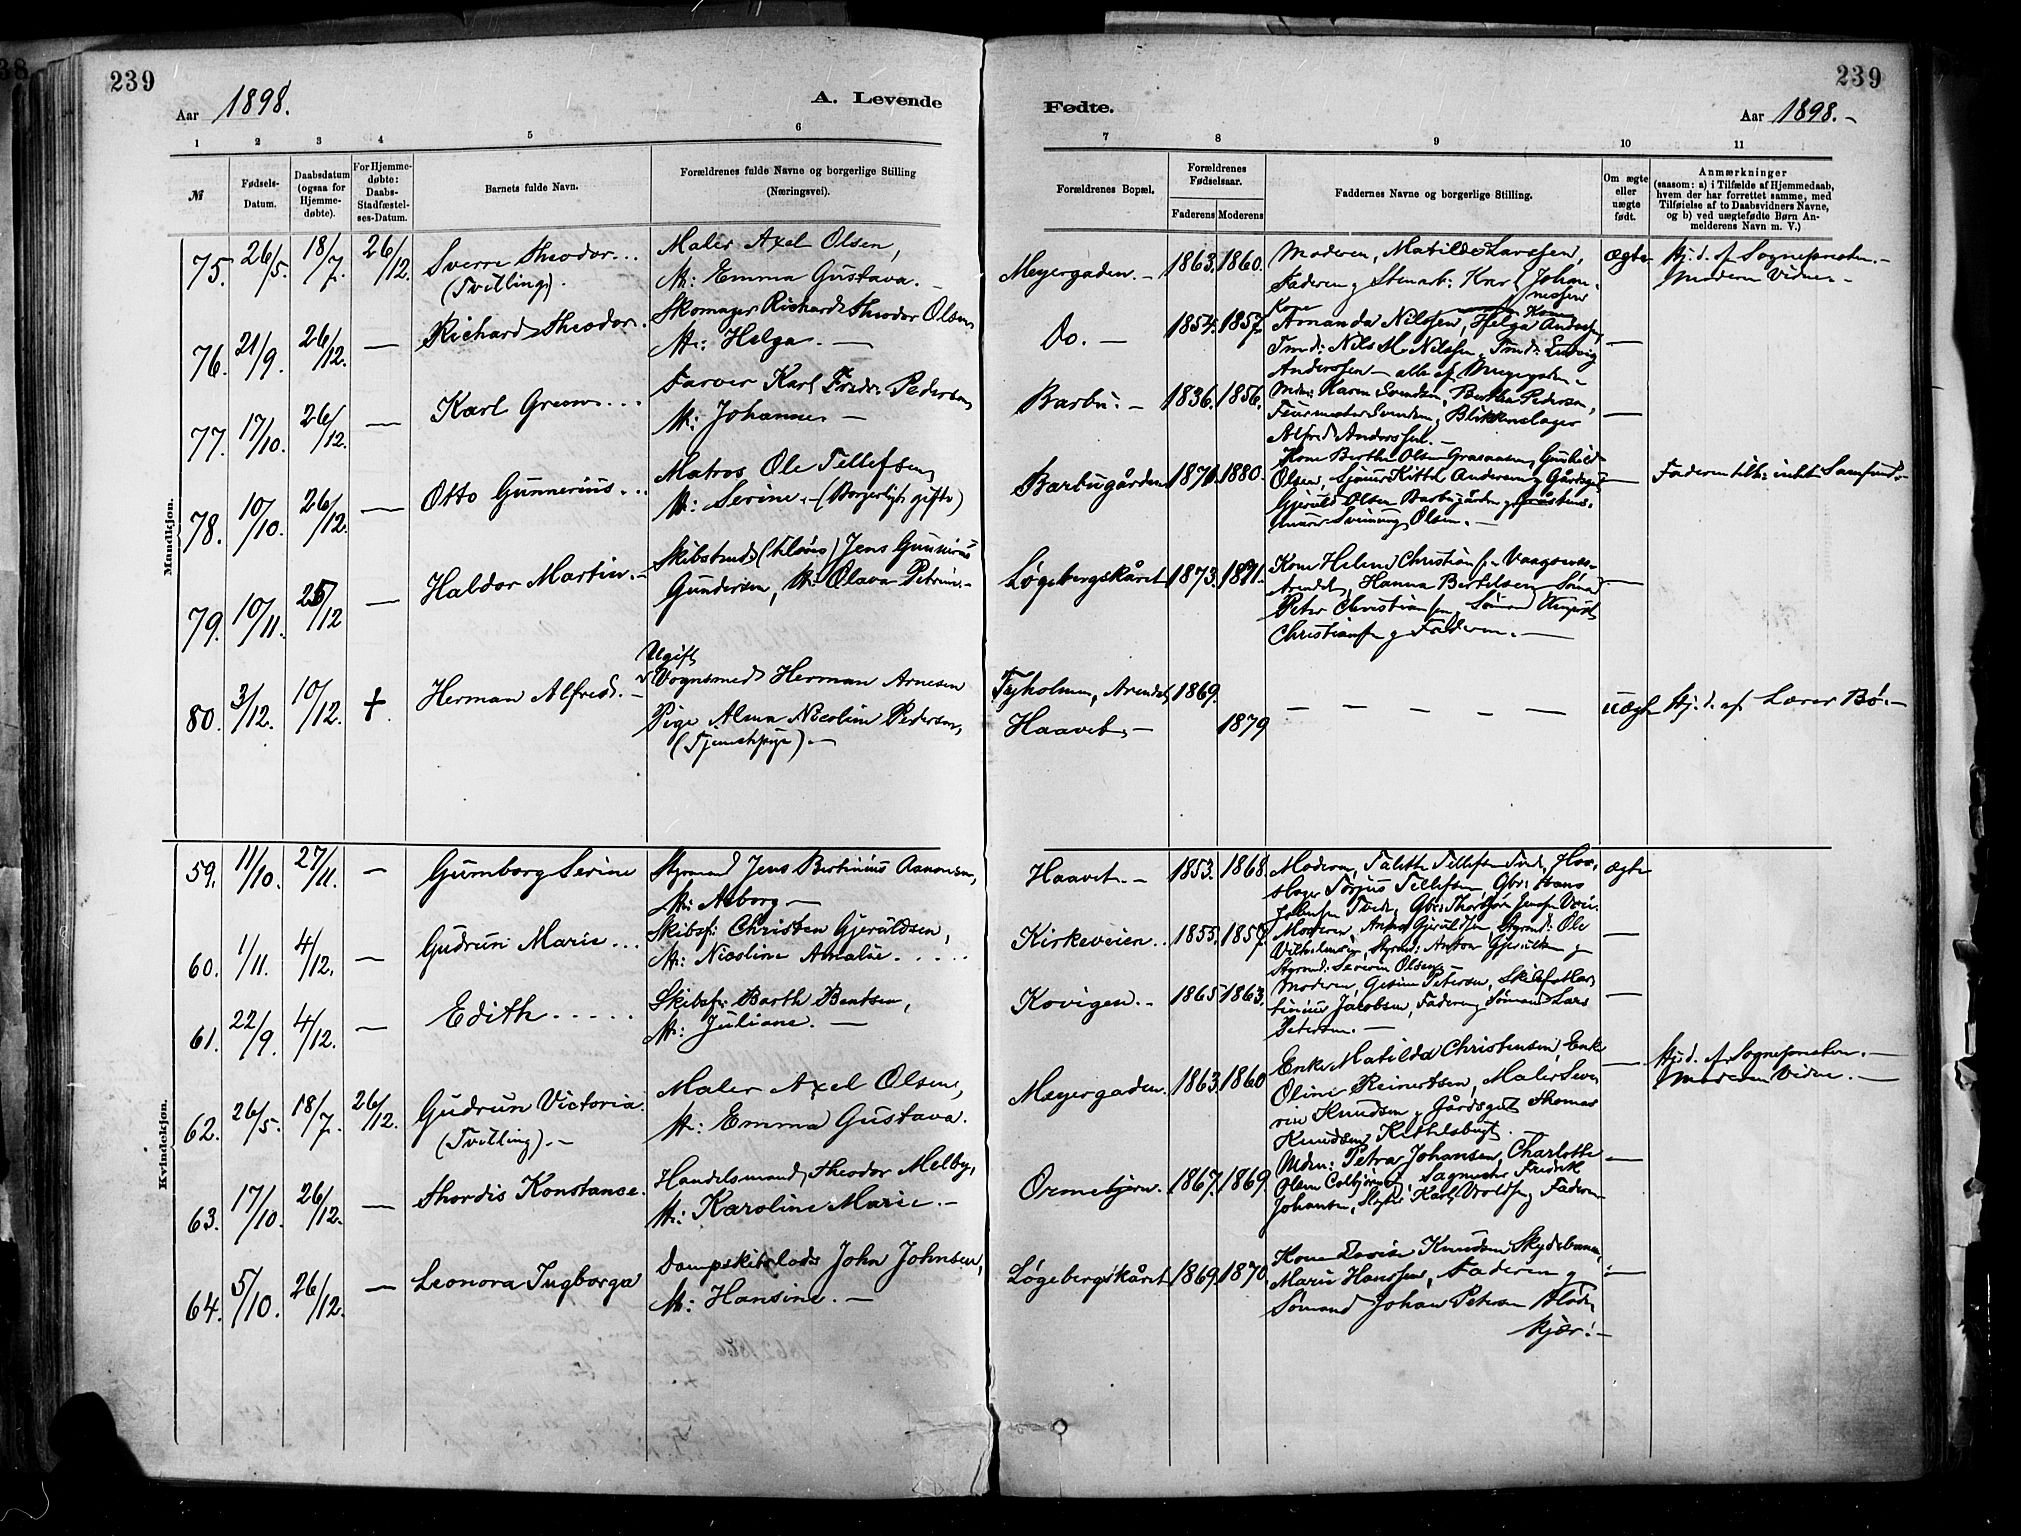 239
239
Aar 1898.
A. Levende
Fødte.
Aar 1898.-
1 2 3 4 5 6 7 8 9 10 11
№
Fødsels-
Datum.
Daabsdatum
(ogsaa for
Hjemme-
døbte).
For Hjemme-
døbte:
Daabs-
Stadfæstel-
ses-Datum.
Barnets fulde Navn.
Forældrenes fulde Navne og borgerlige Stilling
(Næringsvei).
Forældrenes Bopæl.
Forældrenes
Fødselsaar.
Faderens Moderens
Faddernes Navne og borgerlige Stilling.
Om ægte
eller
uægte
født.
Anmærkninger
(saasom: a) i Tilfælde af Hjemmedaab,
hvem der har forrettet samme, med
Tilføielse af to Daabsvidners Navne,
og b) ved uægtefødte Børn An-
melderens Navn m. V.)
Mandkjøn.
75. 26/5. 18/7. 26/12.
Sverre Theodor...
(Tvilling).
Maler Axel Olsen,
H: Emma Gustava.-
Meyergaden.- 1863. 1860.
Moderen, Matilde Larssen,
Faderen, Stenarb: Karl Johan-
nessen
ægte
Hj. d. af Sognepresten.-
Moderen Vidne.-
76. 21/9. 26/12. —
Richard Theodor.
Skomager Richard Theodor Olsen
H: Helga.—
Do.- 1854. 1857.
Kone Kone
Amanda Nilssen, Helga Anderssen,
Tmd: Nils M. Nilssen, Tmd: Ludvig
Anderssen – alle af Meyergaden.-
—
77. 17/10. 26/12. —
Karl Green...
Farver Karl Fredr: Pedersen,
H: Johanne.—
Barbu.- 1836. 1856.
Mdn: Karen Svendsen, Bertha Pedersen,
Feiermester Svendsen, Blikkenslager
Alfred Anderssen.-
—
78. 10/10. 26/12. —
Otto Gunnerius...
Matros Ole Tellefsen,
H: Serine.- (Borgerligt gifte)
Barbugården 1870. 1880.
Kone Berthe Olsen Graaaasen, Gunhild
Olsen, Kittil Andersen, Gårdsg:
Gjeruld Olsen Barbugården,
Sveinung Olsen.-
—
Faderen tilh: intet Samfund.-
79. 10/11. 26/12 —
Haldor Martin.-
Skibstmd: (Kløvs) Jens Gunnerius
Gundersen, H: Olava Petrine.-
Løgebergskåret 1873. 1871.-
Kone Helene Christiansen Vaagsnes
Arendal, Hanna Bertelsen, Sømand
Peter Christiansen, Sømand August
Christiansen og Faderen.—
—
80. 3/12. 10/12. +
Herman Alfred.-
Ugift
Vognsmed Herman Arnesen
Pige Alma Nicoline Pedersen,
(Tjenestepige).-
Tyholmen, Arendal, 1869.
Haavet,- 1879
— — — — — —
uægte
Hj. d. af Lærer Bø.-
Kvindekjøn.
59. 11/10. 27/11. —
Gunborg Serine
Styrmand Jens Bertinius Aanonsen,
H: Asborg—
Haavet.- 1853. 1868.
Moderen, Talette Tellefsen Tved,
Torjus Tellefsen, Gbr: Hans
Johnsen Tved, Gbr: Thorbjørn Jensen
ægte
60. 1/11. 4/12. —
Gudrun Marie...
Skibsf: Christen Gjeruldsen,
H: Nicoline Amalie.....
Kirkeveien.. 1855. 1857.
Moderen, Anna Gjeruldsen, Styrmd: Ole
Vilhelmsen, Styrmd: Anton Gjeruldsen og
Styrmd: Severin Olsen.-
—
61. 22/9. 4/12. —
Edith.....
Skibsf: Barth Bentsen,
H: Juliane.—
Kovigen.- 1865. 1863.
Moderen, Gesine Petersen, Skibsf: Mar-
tinius Jacobsen, Faderen, Sømand Lars
Petersen.—
—
62. 26/5. 18/7. 26/12.
Gudrun Victoria.
(Tvilling).-
Maler Axel Olsen,
H: Emma Gustava.
Meyergaden. 1863. 1860
Enke Matilda Christensen, Enke
Oline Reinertsen, Maler Seve-
rin Knudsen, Gårdsgut Thomas
Knudsen, Kittelsbugt.
—
Hj. d. af Sognepresten.-
Moderen Vidne.—
63. 17/10. 26/12. —
Thordis Konstanse.
Handelsmand Theodor Melby,
H: Karoline Marie.-
Ormebjerv. 1867. 1869
Mdn: Petra Johansen, Charlotte
Olene Colbjørnsen, Sagmester Fredrik
Johansen, Karl Voldsen, Faderen
—
64. 5/10. 26/12. —
Leonora Ingborga
Dampskibslods John Johnsen,
H: Hansine.—
Løgebergskåret 1869. 1870
Kone Lovise Knudsen Skydebanen,
Marie Hanssen, Faderen og
Sømand Johan Petersen Flöde-
kjær.-
—